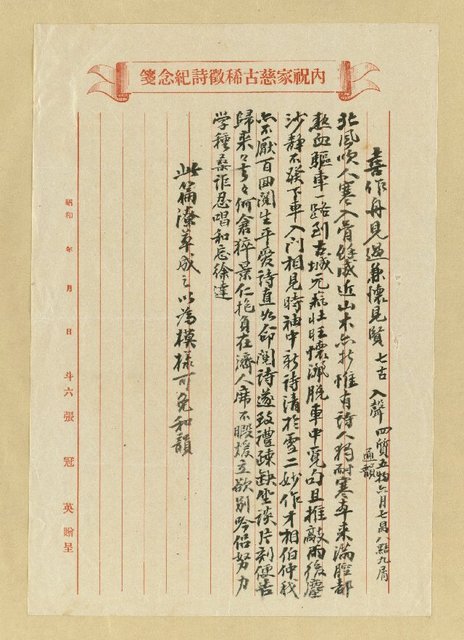 內祝家慈古稀徵詩紀念箋
喜作舟見過兼懷見賢 七古 入聲 四質五物六月七曷八點九屑通韻
北風吹人寒入骨 近山木 惟有詩人獨耐寒 來滿腔都
熱血驅車一路到古城元 壯懷 脫車中覓句且推敲雨後塵
沙靜不發下車入門相見時袖中新詩清於雪二妙作才相伯仲我
亦不厭百回閱生平愛詩直如命閱詩遂致禮疎缺坐談片刻便告
歸來去何倉猝景仁抱負在濟人席不暇煖立欲別吟侶努力
学種桑 唱和 徐達
此篇潦草成之以為模樣可免和韻
昭和 年 月 日 斗六 張 冠 英 贈呈